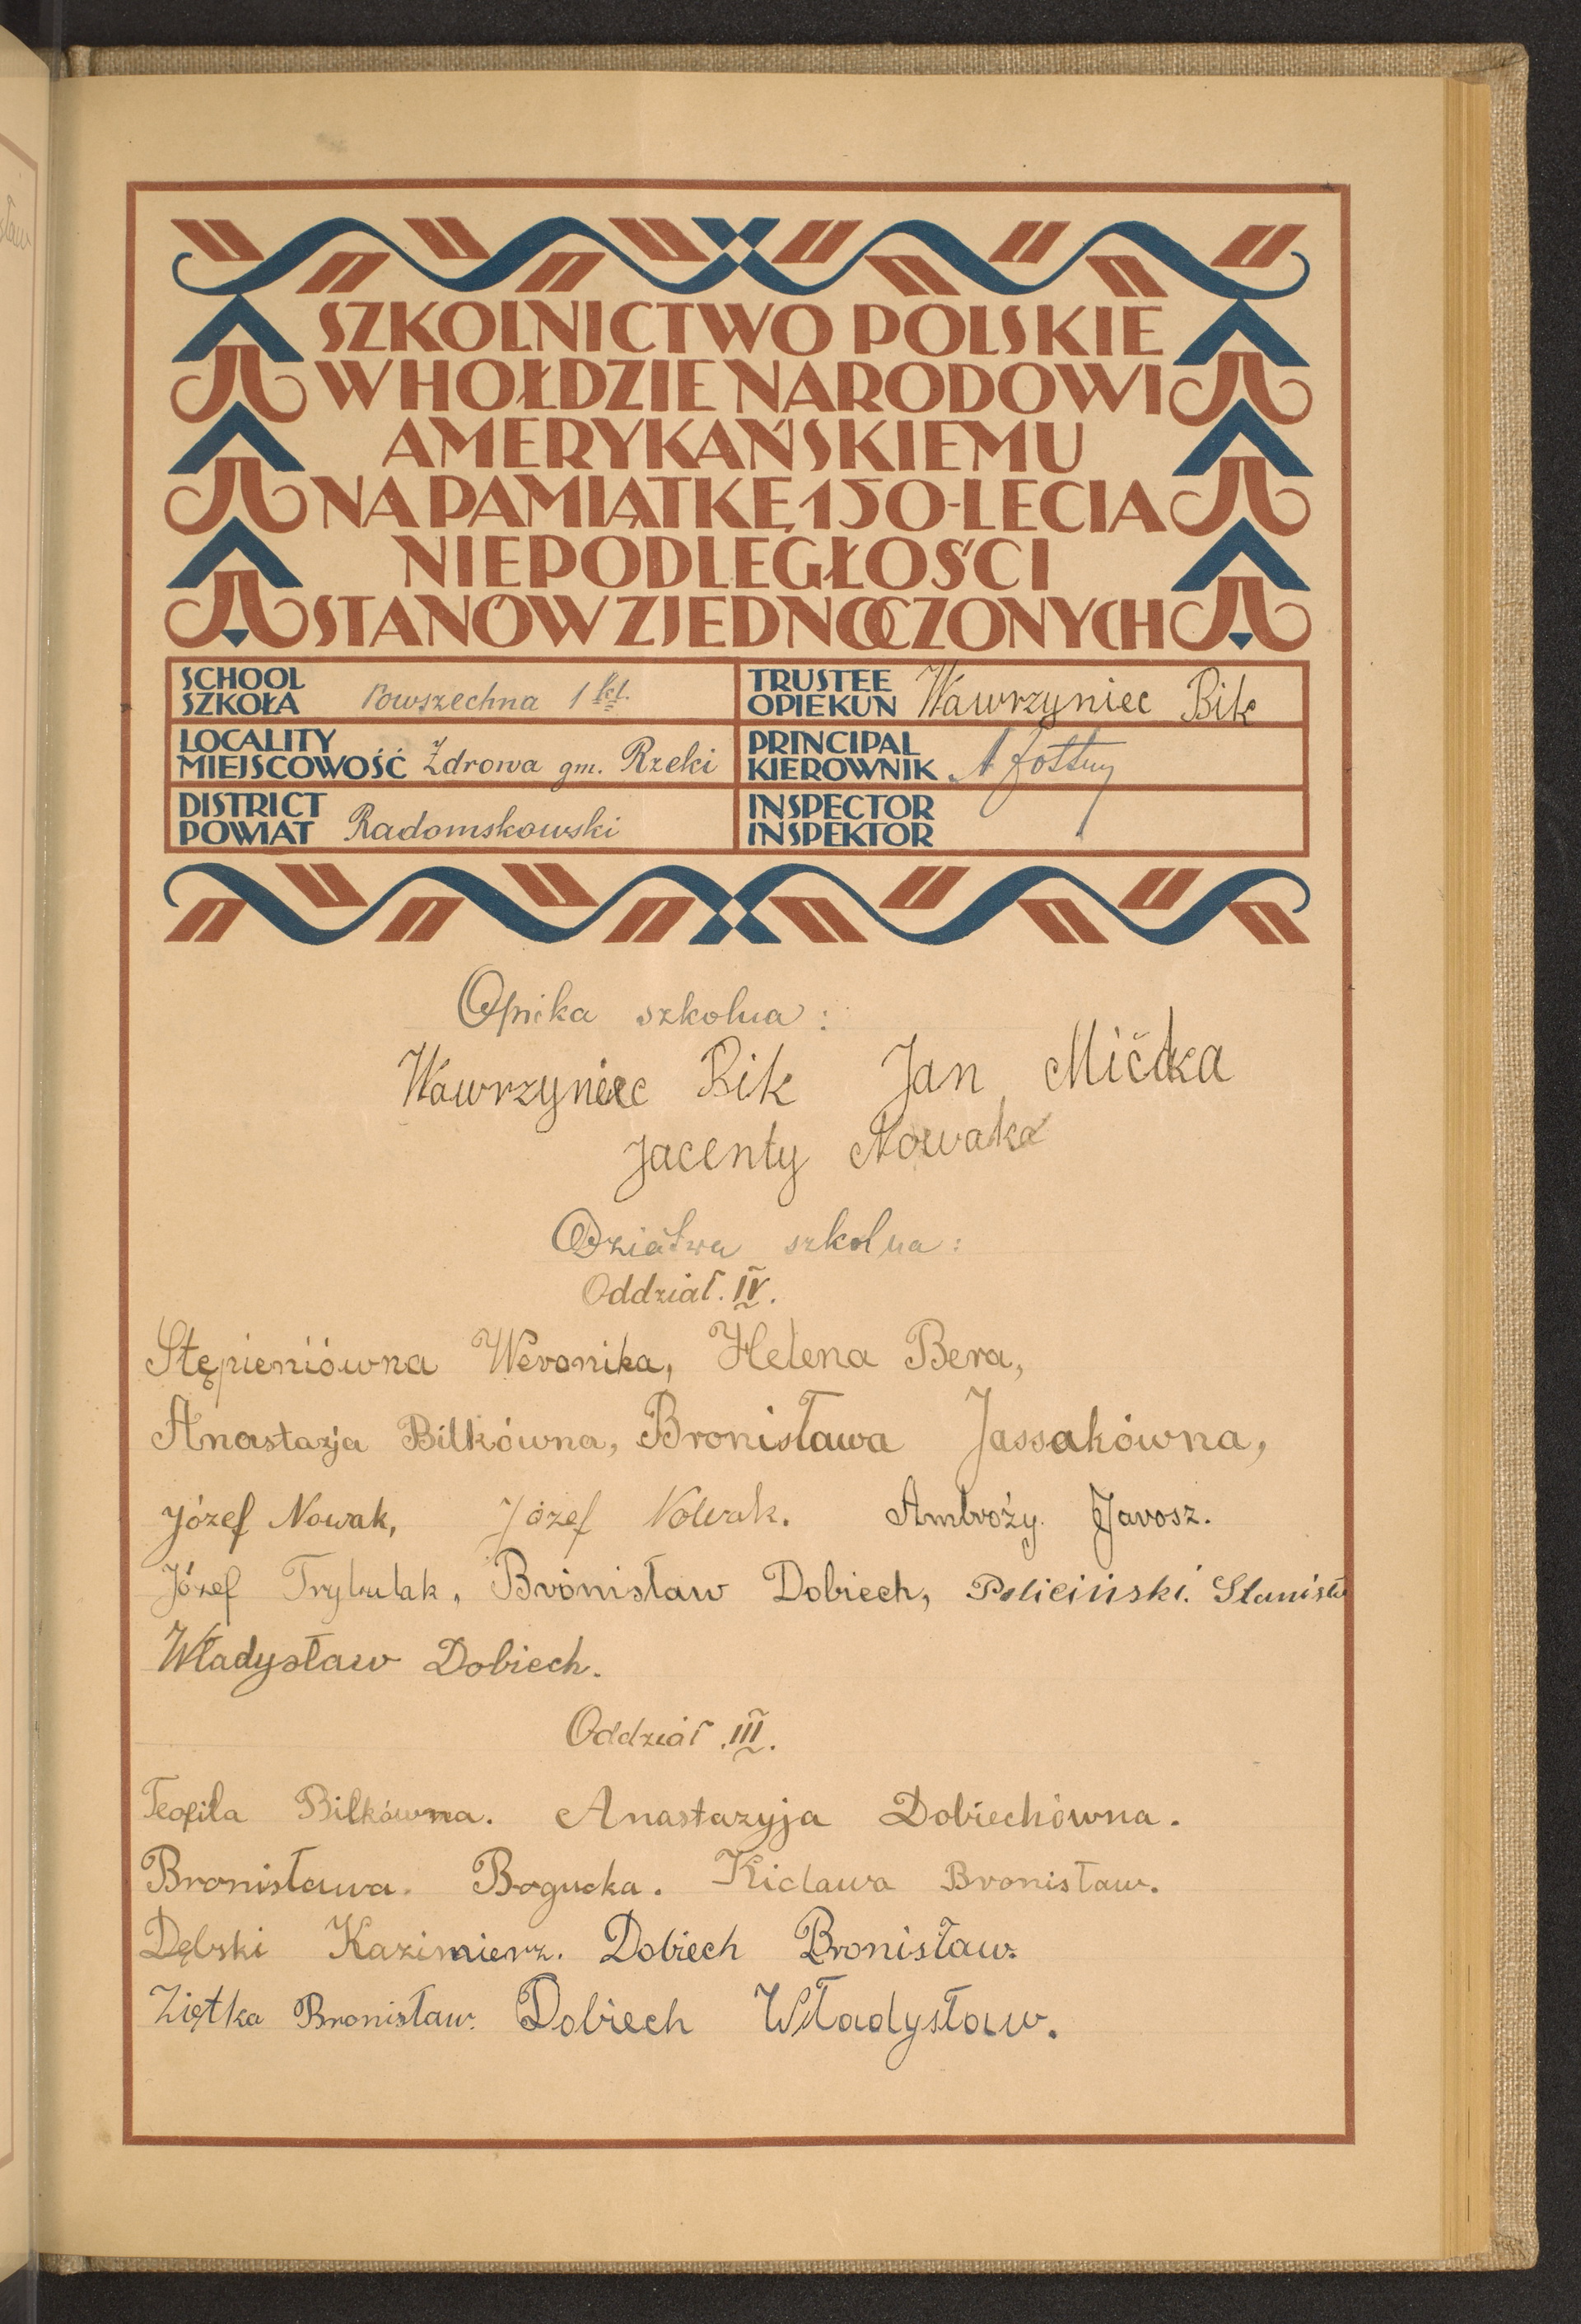 SZKOLNICTWO POLSKIE
W HOŁDZIE NARODOWI
AMERYKAŃSKIEMU
NA PAMIĄTKĘ 150-LECIA
NIEPODLEGŁOŚCI
STANÓW ZJEDNOCZONYCH
SCHOOL
SZKOŁA Powszechna 1 kl.
TRUSTEE
OPIEKUN Wawrzyniec Bik
LOCALITY
MIEJSCOWOŚĆ Zdrowa gm. Rzeki
PRINCIPAL
KIEROWNIK
DISTRICT
POWIAT Radomskowski
INSPECTOR
INSPEKTOR
Opieka szkolna:
Wawrzyniec Bik Jan Mićka
Jacenty Nowak
Dziatwa szkolna:
Oddział. IV.
Stępieniówna Weronika, Helena Bera,
Anastazja Bilkówna, Bronisława Jassakówna,
Józef Nowak, Józef Nowak. Ambroży. Jarosz.
Józef Trybulak, Bronisław Dobiech, Policiński. Stanisław
Władysław Dobiech.
Oddział .III.
Teofila Bilkówna. Anastazyja Dobiechówna.
Bronisława. Bogucka. Kidawa Bronisław.
Dębski Kazimierz. Dobiech Bronisław.
Ziętka Bronisław. Dobiech Władysław.